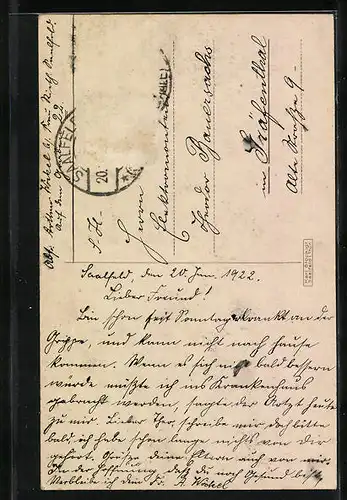 S. H.
Herrn
Elektromonteur
Theodor Bauersachs
in Gräfenthal
Alte Straße 9
SAALFELD
20.
Saalfeld, den 20. Jan. 1922.
Lieber Freund!
Bin schon seit Sonntag erkrankt an der
Grippe, und kann nicht nach hause
kommen. Wenn es sich nicht bald bessern
würde müßte ich ins Krankenhaus
gebracht werden, sagte der Arzt heute
zu mir. Lieber Theo. schreibe mir doch bitte
bald ich habe schon lange nichts von dir
gehört. Grüße deine Eltern auch von mir.
In der Hoffnung, daß du noch Gesund bist
Verbleibe ich dein